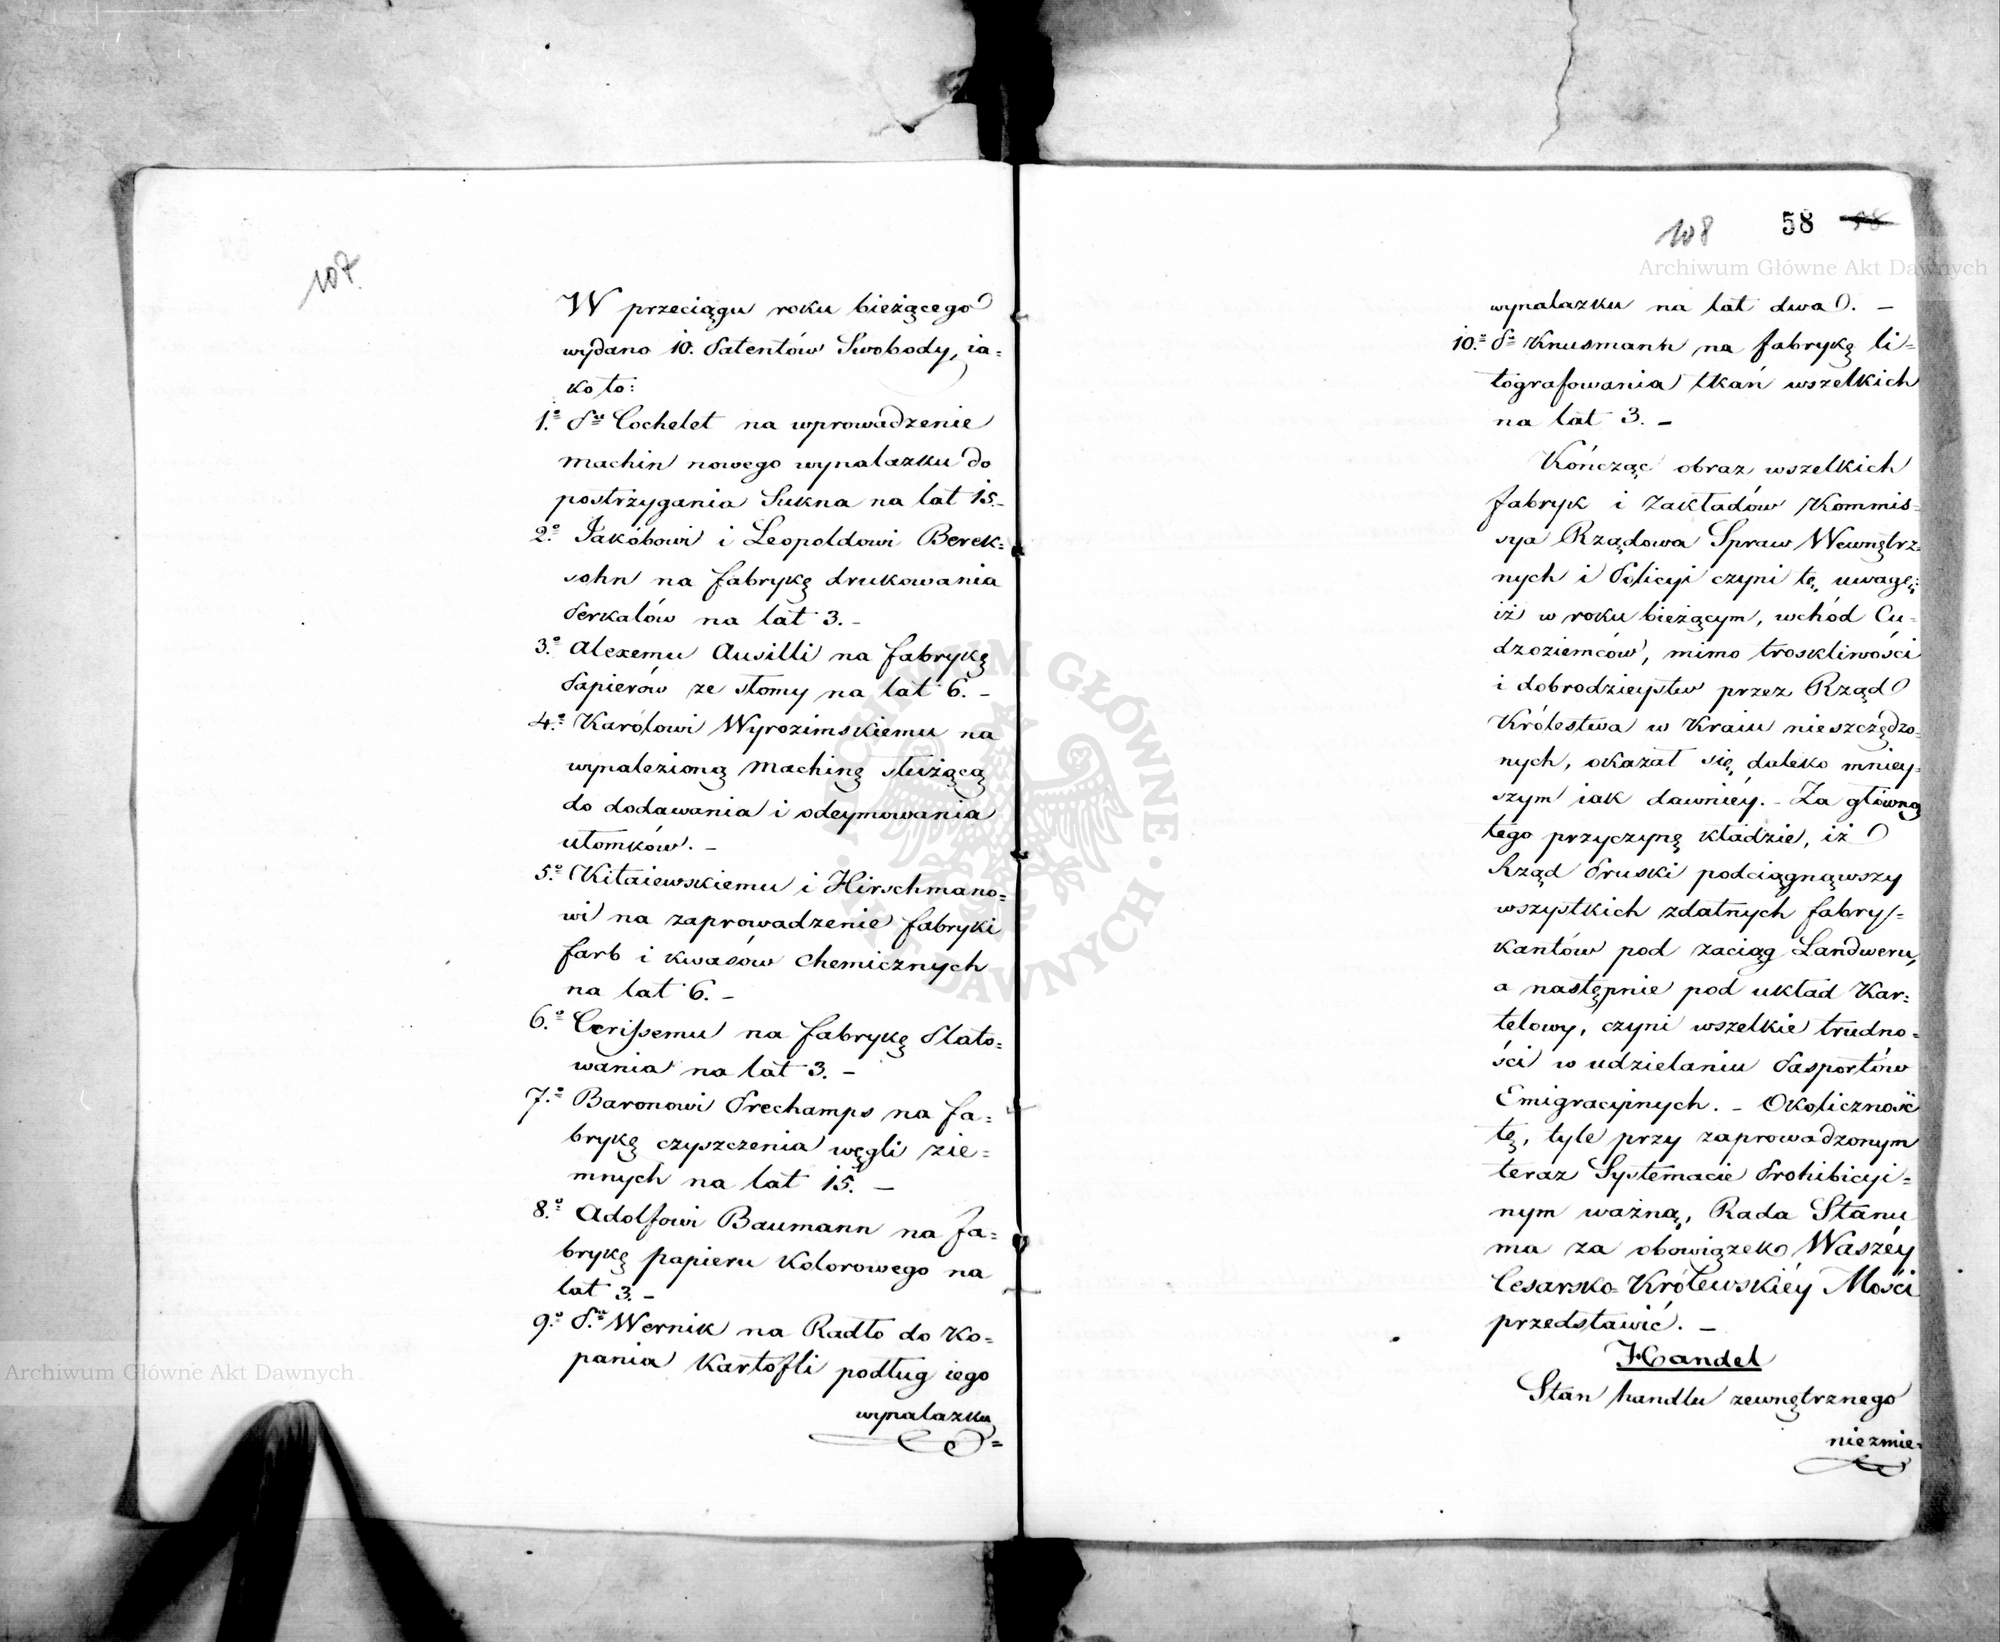 107.
W przeciągu roku bieżącego
wydano 10. Patentów Swobody, ia=
ko to:
1.º Pu Cochelet na wprowadzenie
machin nowego wynalazku do
postrzygania Sukna na lat 15.-
2.º Jakóbowi i Leopoldowi Berek=
sohn na fabrykę drukowania
Perkalów na lat 3. -
3.º Alexemu Ausilli na fabrykę
Papierów ze słomy na lat 6. -
4.º Karólowi Wyrozimskiemu na
wynalezioną machinę służącą
do dodawania i odeymowania
ułomków. -
5.º Kitaiewskiemu i Hirschmano=
wi na zaprowadzenie fabryki
farb i kwasów chemicznych
na lat 6. -
6.º Cerissemu na fabrykę Plato=
wania na lat 3. -
7.º Baronowi Prechamps na fa=
brykę czyszczenia węgli zie=
mnych na lat 15. -
8.º Adolfowi Baumann na fa=
brykę papieru kolorowego na
lat 3. -
9.º Pu Wernik na Radło do ko=
pania Kartofli podług iego
wynalazku
108 58
wynalazku na lat dwa. -
10.º Pu Knusmann na fabrykę li=
tografowania tkań wszelkich
na lat 3. -
Kończąc obraz wszelkich
fabryk i zakładów Kommis=
sya Rządowa Spraw Wewnętrz=
nych i Policyi czyni tę uwagę:
iż w roku bieżącym, wchód Cu=
dzoziemców, mimo troskliwości
i dobrodzieystw przez Rząd
Królestwa w Kraiu nieszczędzo=
nych, okazał się daleko mniey=
szym iak dawniéy. - Za główną
tego przyczynę kładzie, iż
Rząd Pruski podciągnąwszy
wszystkich zdatnych fabry=
kantów pod zaciąg Landweru,
a następnie pod układ Kar=
telowy, czyni wszelkie trudno=
ści w udzielaniu Pasportów
Emigracyinych. - Okoliczność
tę, tyle przy zaprowadzonym
teraz Systemacie Prohibicyi=
nym ważną, Rada Stanu
ma za obowiązek Waszéy
Cesarsko-Królewskiéy Mości
przedstawić. -
Handel
Stan handlu zewnętrznego
niezmie=
Archiwum Główne Akt Dawnych
Archiwum Główne Akt Dawnych
ARCHIWUM GŁÓWNE AKT DAWNYCH